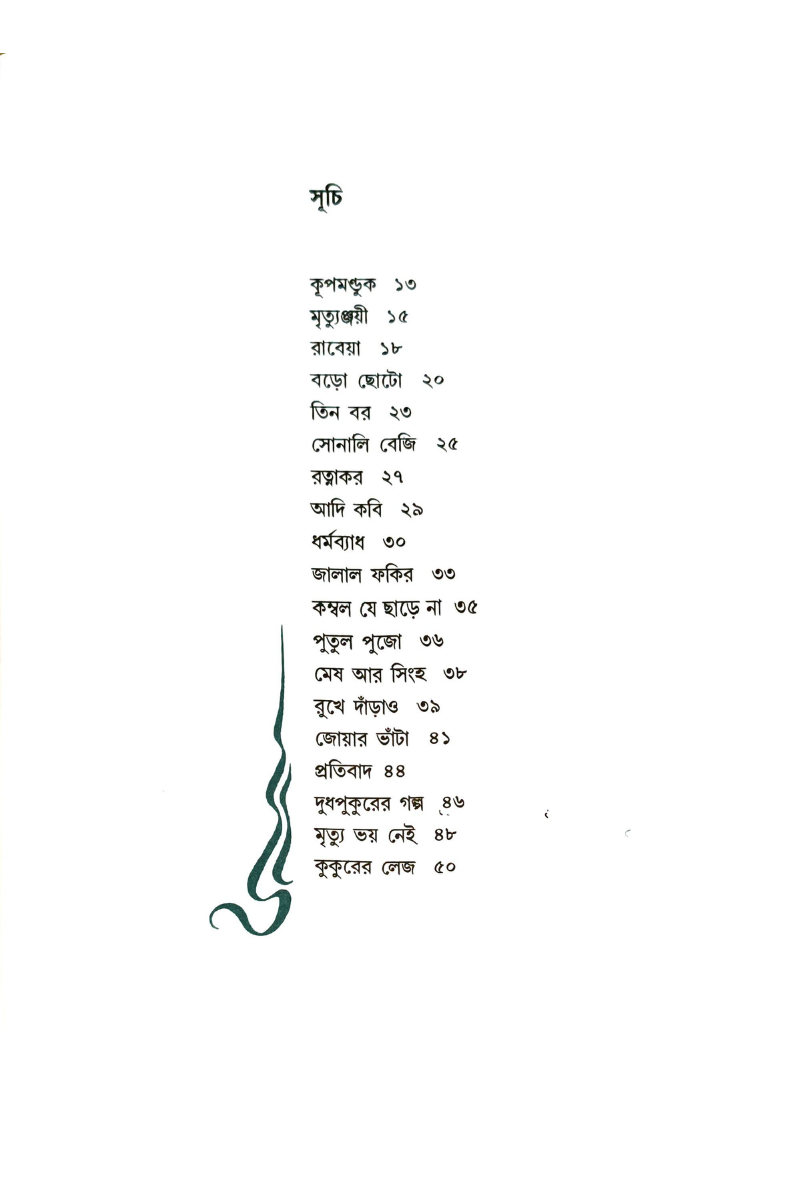 সূচি
কূপমণ্ডুক ১৩
মৃত্যুঞ্জয়ী ১৫
রাবেয়া ১৮
বড়ো ছোটো ২০
তিন বর ২৩
সোনালি বেজি ২৫
রত্নাকর ২৭
আদি কবি ২৯
ধর্মব্যাধ ৩০
জালাল ফকির ৩৩
কম্বল যে ছাড়ে না ৩৫
পুতুল পুজো ৩৬
মেষ আর সিংহ ৩৮
রুখে দাঁড়াও ৩৯
জোয়ার ভাঁটা ৪১
প্রতিবাদ ৪৪
দুধপুকুরের গল্প ৪৬
মৃত্যু ভয় নেই ৪৮
কুকুরের লেজ ৫০